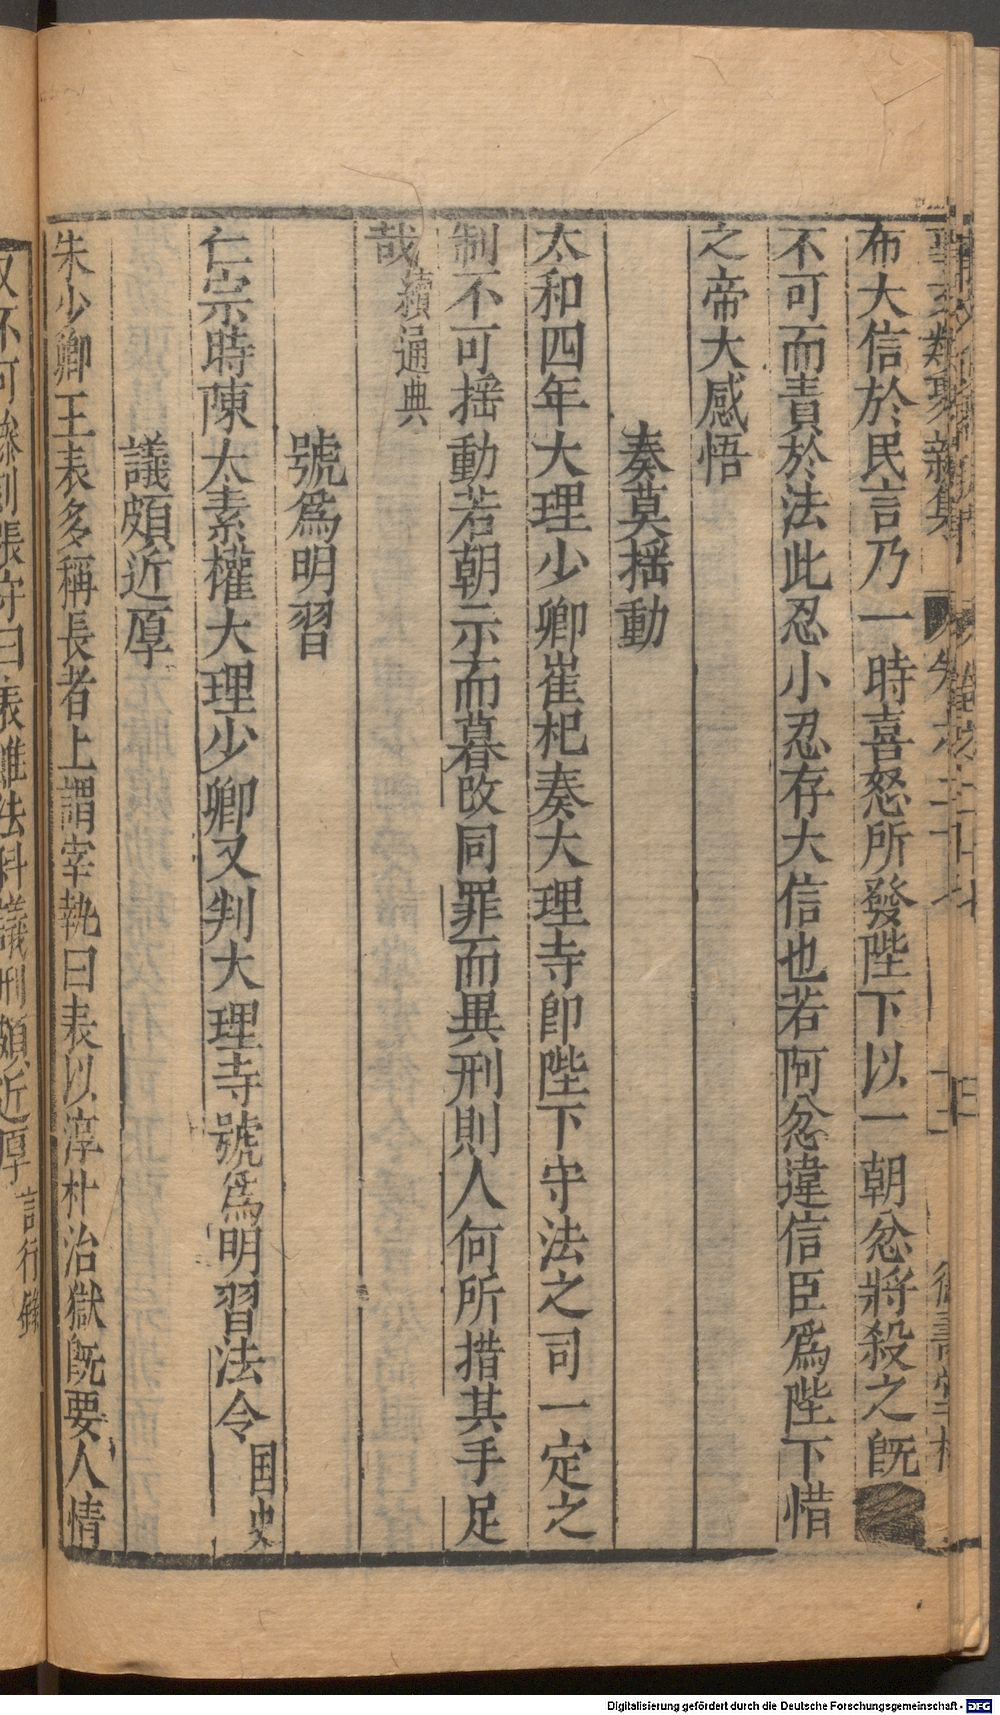 事文類聚新集
卷之二十七
布大信於民言乃一時喜怒所發陛下以一朝忿將殺之旣
不可而責於法此忍小忿存大信也若阿忿違信臣爲陛下惜
之帝大感悟
奏莫揺動
太和四年大理少卿崔杞奏大理寺卽陛下守法之司一定之
制不可揺動若朝示而暮改同罪而異刑則人何所措其手足
哉續通典
號爲明習
仁宗時陳太素權大理少卿又判大理寺號爲明習法令国史
議頗近厚
朱少卿王表多稱長者上謂宰執曰表以淳朴治獄旣要人情
不可慘刻張守曰表雖法科議刑頗近厚言行錄
Digitalisierung gefördert durch die Deutsche Forschungsgemeinschaft - DFG